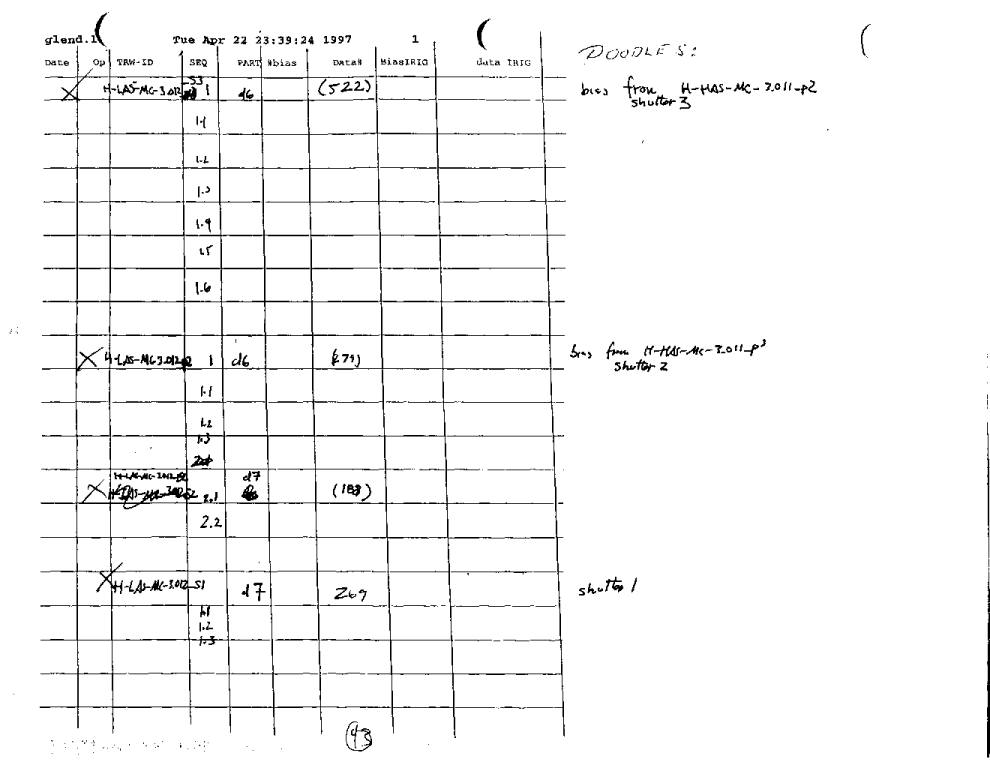 glend.1 Tue Apr 22 23:39:24 1997 1
DOODLES:
Date Op TRW-ID SEQ PART #bias Data# BiasIRIG data IRIG
H-LAS-MC-3.012 S3 1 d6 (522) bias from H-HAS-MC-3.011-p2
shutter 3
1.1
1.2
1.3
1.4
1.5
1.6
H-LAS-MC-3.012 1 d6 bias from H-HAS-MC-3.011-p3
shutter 2
1.1
1.2
1.3
d7
2.1 (188)
2.2
H-LAS-MC-3.012_S1 d7 269 shutter 1
1.1
1.2
1.3
43